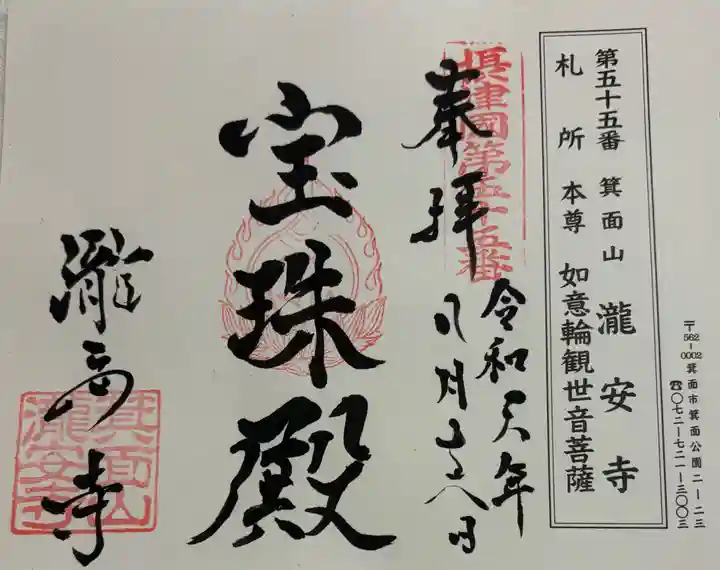 第五十五番 箕面山 瀧安寺
札所本尊 如意輪観世音菩薩
〒562-0002 箕面市箕面公園二-二三
☎〇七二-七二一-三〇〇三
摂津國第五十五番
奉拝
令和元年
宝珠殿
瀧安寺
箕面山
瀧安寺